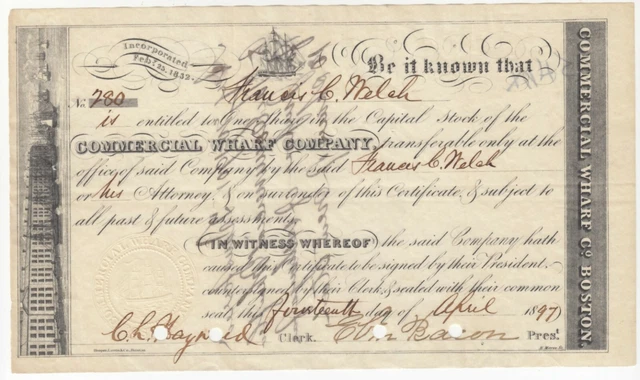 Incorporated
Feb. 23. 1832.
Be it known that
No. 780
Francis C. Welch
is entitled to One share in the Capital Stock of the
COMMERCIAL WHARF COMPANY, transferable only at the
office of said Company by the said Francis C Welch
or his Attorney, & on surrender of this Certificate, & subject to
all past & future assessments.
IN WITNESS WHEREOF the said Company hath
caused this Certificate to be signed by their President,
countersigned by their Clerk, & sealed with their common
seal, this fourteenth day of April 1897
Clerk. Bacon Prest.
COMMERCIAL WHARF Co. BOSTON.
COMMERCIAL WHARF COMPANY